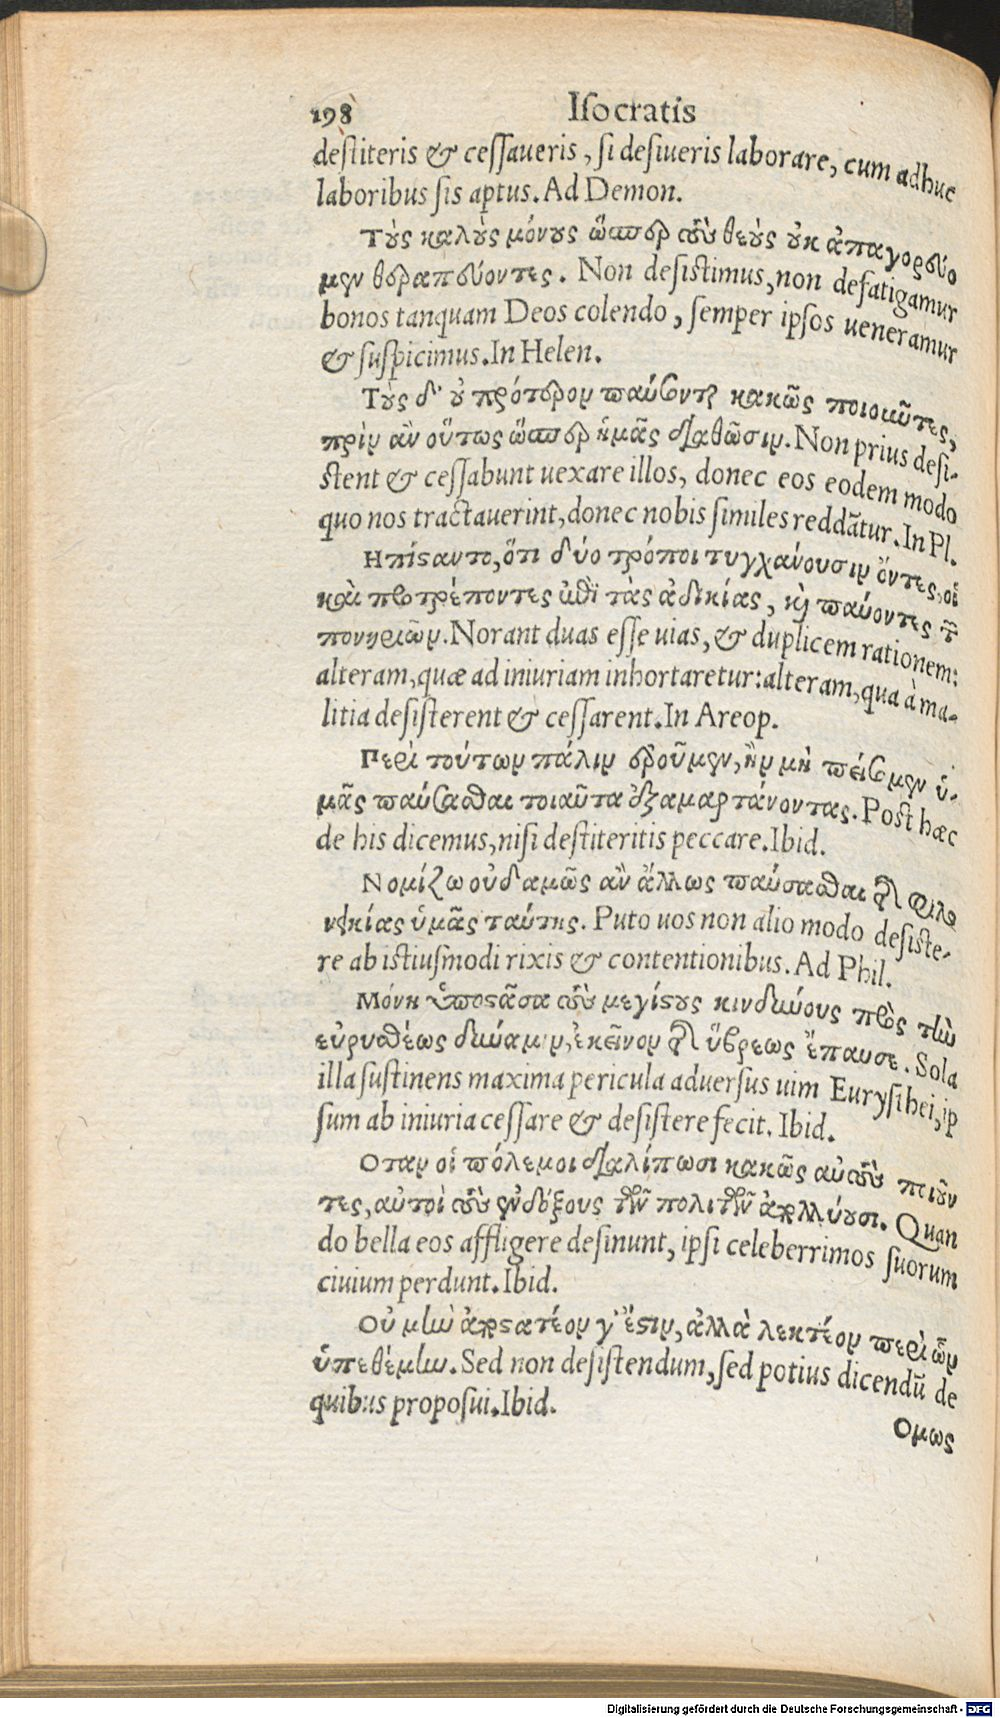 198 Isocratis
destiteris & cessaueris, si desiueris laborare, cum adhuc
laboribus sis aptus. Ad Demon.
Τοὺς καλοὺς μόνους ὥσπερ τοὺς θεοὺς οὐκ ἀπαγορεύο
μεν θεραπεύοντες. Non desistimus, non defatigamur
bonos tanquam Deos colendo, semper ipsos ueneramur
& suspicimus. In Helen.
Τοὺς δ' οὐ πρότερον παύσονται κακῶς ποιοῦντες,
πρὶν ἂν οὕτως ὥσπερ ἡμᾶς διαθῶσιν. Non prius desi-
stent & cessabunt uexare illos, donec eos eodem modo
quo nos tractauerint, donec nobis similes reddātur. In Pl.
Ηπίσαντο, ὅτι δύο τρόποι τυγχάνουσιν ὄντες, οἱ
καὶ προτρέποντες ἐπὶ τὰς ἀδικίας, καὶ παύοντες τῶν
πονηριῶν. Norant duas esse uias, & duplicem rationem:
alteram, quæ ad iniuriam inhortaretur: alteram, qua à ma-
litia desisterent & cessarent. In Areop.
Περὶ τούτων πάλιν ἐροῦμεν, ἢν μὴ πείσωμεν ὑ-
μᾶς παύσασθαι τοιαῦτα ἐξαμαρτάνοντας. Post hæc
de his dicemus, nisi destiteritis peccare. Ibid.
Νομίζω οὐδαμῶς ἂν ἄλλως παύσασθαι τῆς φιλο
νεικίας ὑμᾶς ταύτης. Puto uos non alio modo desiste-
re ab istiusmodi rixis & contentionibus. Ad Phil.
Μόνη ὑποστᾶσα τοὺς μεγίστους κινδύνους πρὸς τὴν
εὐρυσθέως δύναμιν, ἐκεῖνον τῆς ὕβρεως ἔπαυσε. Sola
illa sustinens maxima pericula aduersus uim Eurysthei, ip
sum ab iniuria cessare & desistere fecit. Ibid.
Οταν οἱ πόλεμοι διαλίπωσι κακῶς αὐτοὺς ποιοῦν
τες, αὐτοὶ τοὺς ἐνδόξους τῶν πολιτῶν ἀπολλύουσι. Quan
do bella eos affligere desinunt, ipsi celeberrimos suorum
ciuium perdunt. Ibid.
Οὐ μὴν ἀποστατέον γ' ἔστιν, ἀλλὰ λεκτέον περὶ ὧν
ὑπεθέμην. Sed non desistendum, sed potius dicendū de
quibus proposui. Ibid.
Ομως
Digitalisierung gefördert durch die Deutsche Forschungsgemeinschaft - DFG